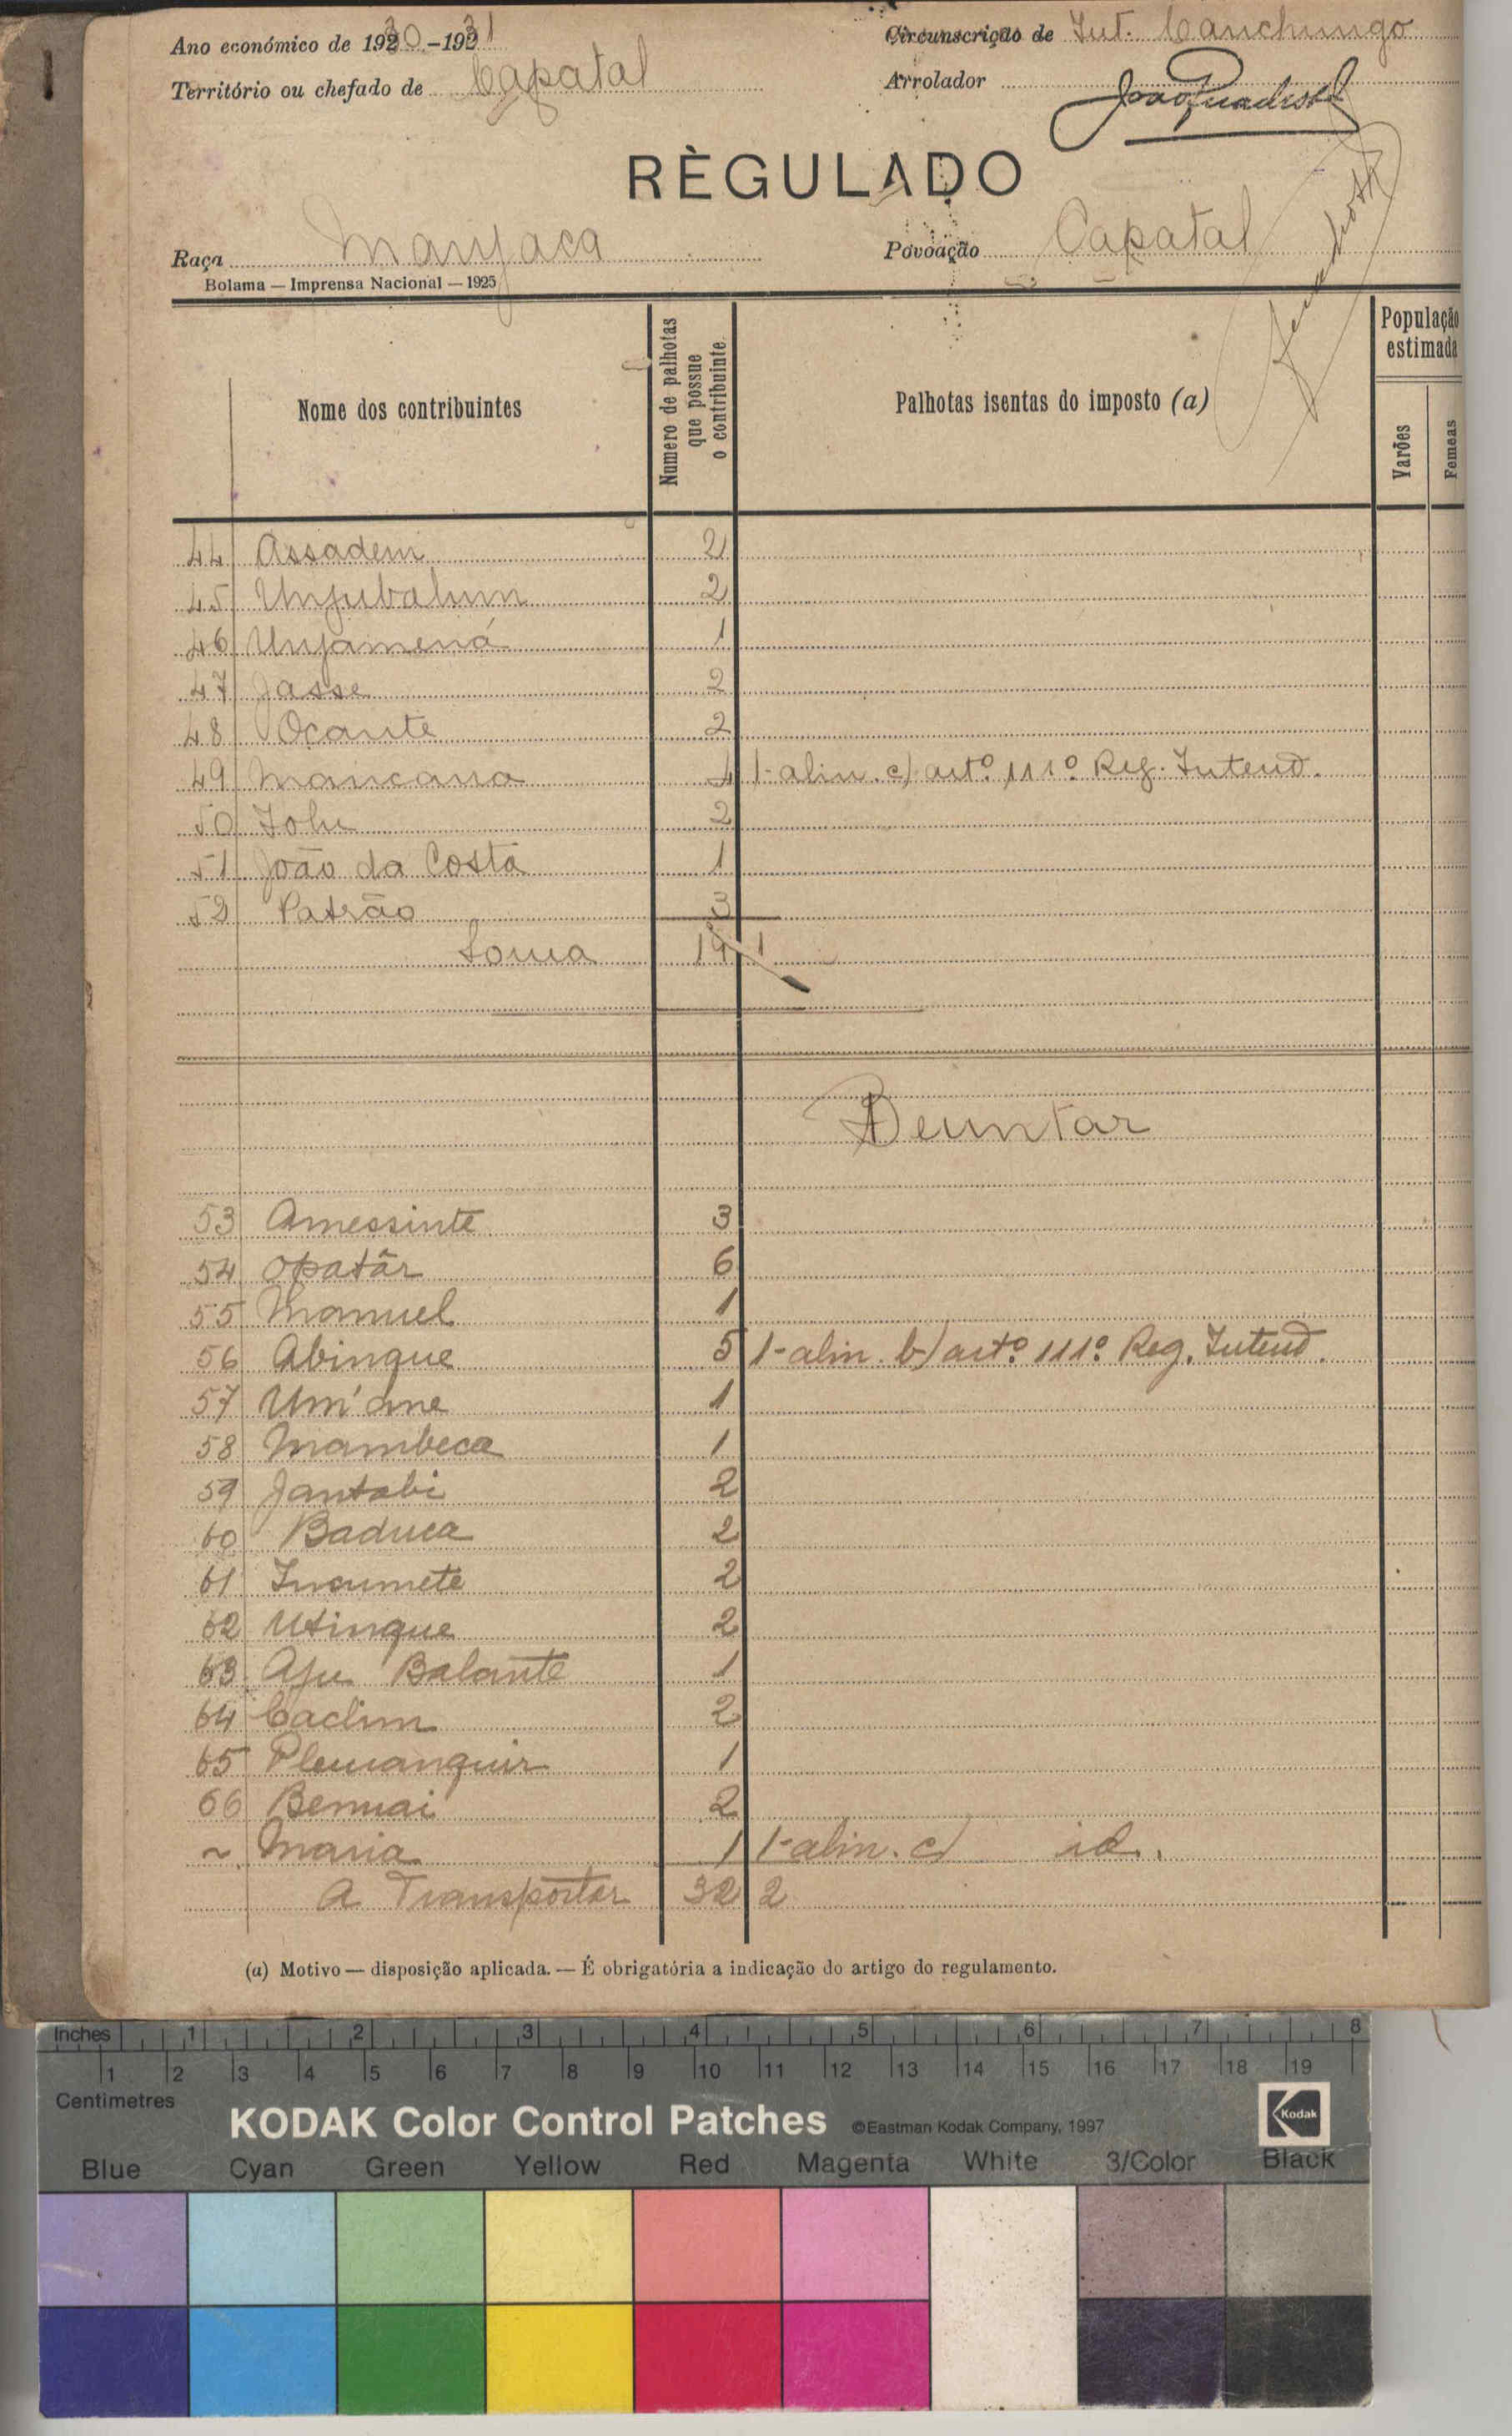 Ano económico de 1930-1931
Circunscrição de Int. Canchungo
Território ou chefado de Capatal
Arrolador
RÈGULADO
Raça Manjaca
Povoação Capatal
Bolama — Imprensa Nacional — 1925
Nome dos contribuintes
Numero de palhotas
que possue
o contribuinte
Palhotas isentas do imposto (a)
População
estimada
Varões
Femeas
44 Assadem 2
45 2
46 Unjamená 1
47 Jasse 2
48 Ocante 2
49 Mancana 4 1-alin. c) artº 111º Reg. Intend.
50 2
51 João da Costa 1
52 Patrão 3
Soma 19 1
53 Amessinte 3
54 Opatâr 6
55 Manuel 1
56 Abinque 5 1-alin. b) artº 111º Reg. Intend.
57 Um'ane 1
58 Mambeca 1
59 Jantabi 2
60 Baduca 2
61 Incumete 2
62 Utinque 2
63 Aju Balante 1
64 Caclim 2
65 1
66 Bennai 2
~ Maria 1 1-alin. c) id.
A Transportar 32 2
(a) Motivo — disposição aplicada. — É obrigatória a indicação do artigo do regulamento.
Inches 1 2 3 4 5 6 7 8
1 2 3 4 5 6 7 8 9 10 11 12 13 14 15 16 17 18 19
Centimetres
KODAK Color Control Patches ©Eastman Kodak Company, 1997 Kodak
Blue Cyan Green Yellow Red Magenta White 3/Color Black